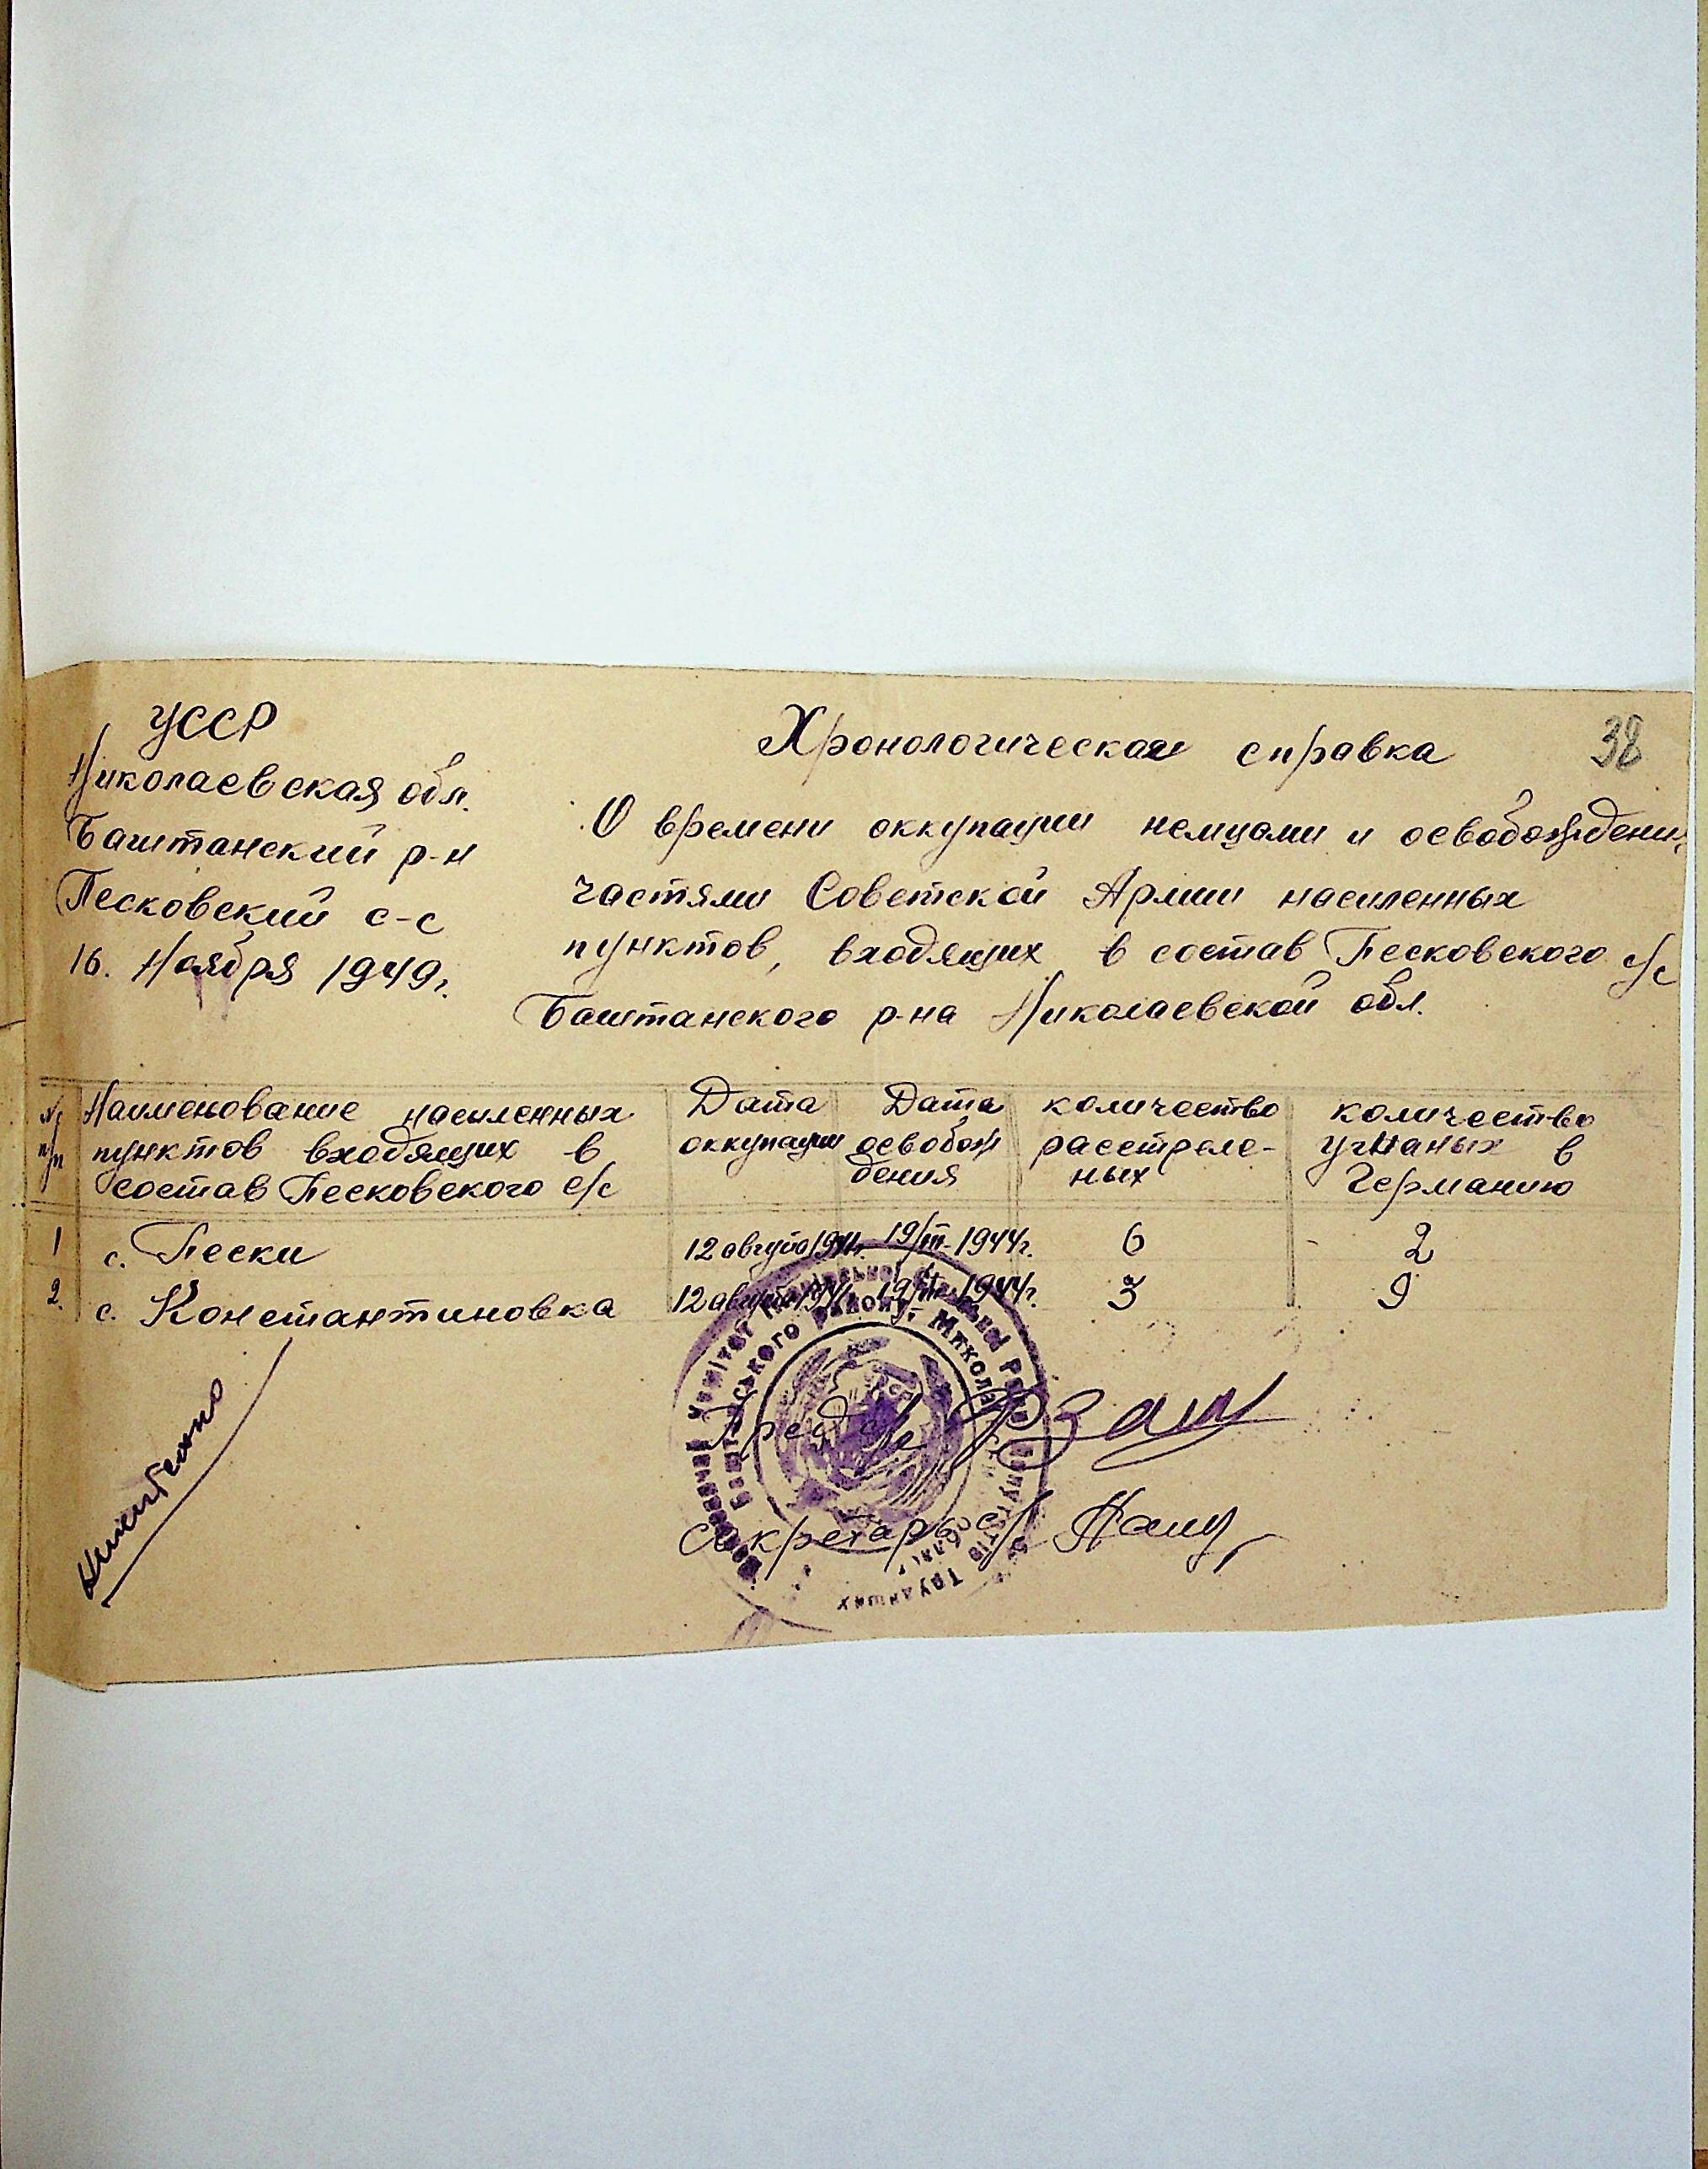 УССР
Николаевская обл.
Баштанский р-н
Песковский с-с
16. Ноября 1949г.
Хронологическая справка
38
О времени оккупации немцами и освобождени,
частями Советской Армии населенных
пунктов, входящих в состав Песковского с/с
Баштанского р-на Николаевской обл.
№ п/п Наименование населенных пунктов входящих в состав Песковского с/с Дата оккупации Дата освобождения количество расстреленых количество угнаных в Германию
1 с. Пески 12 августа 1941г. 19/III-1944г. 6 - 2
2. с. Константиновка 12 августа 1941г. 19/III-1944г. 3 9
Предс.
Секретарь с/
Комітет
району, Микола
Трудящих